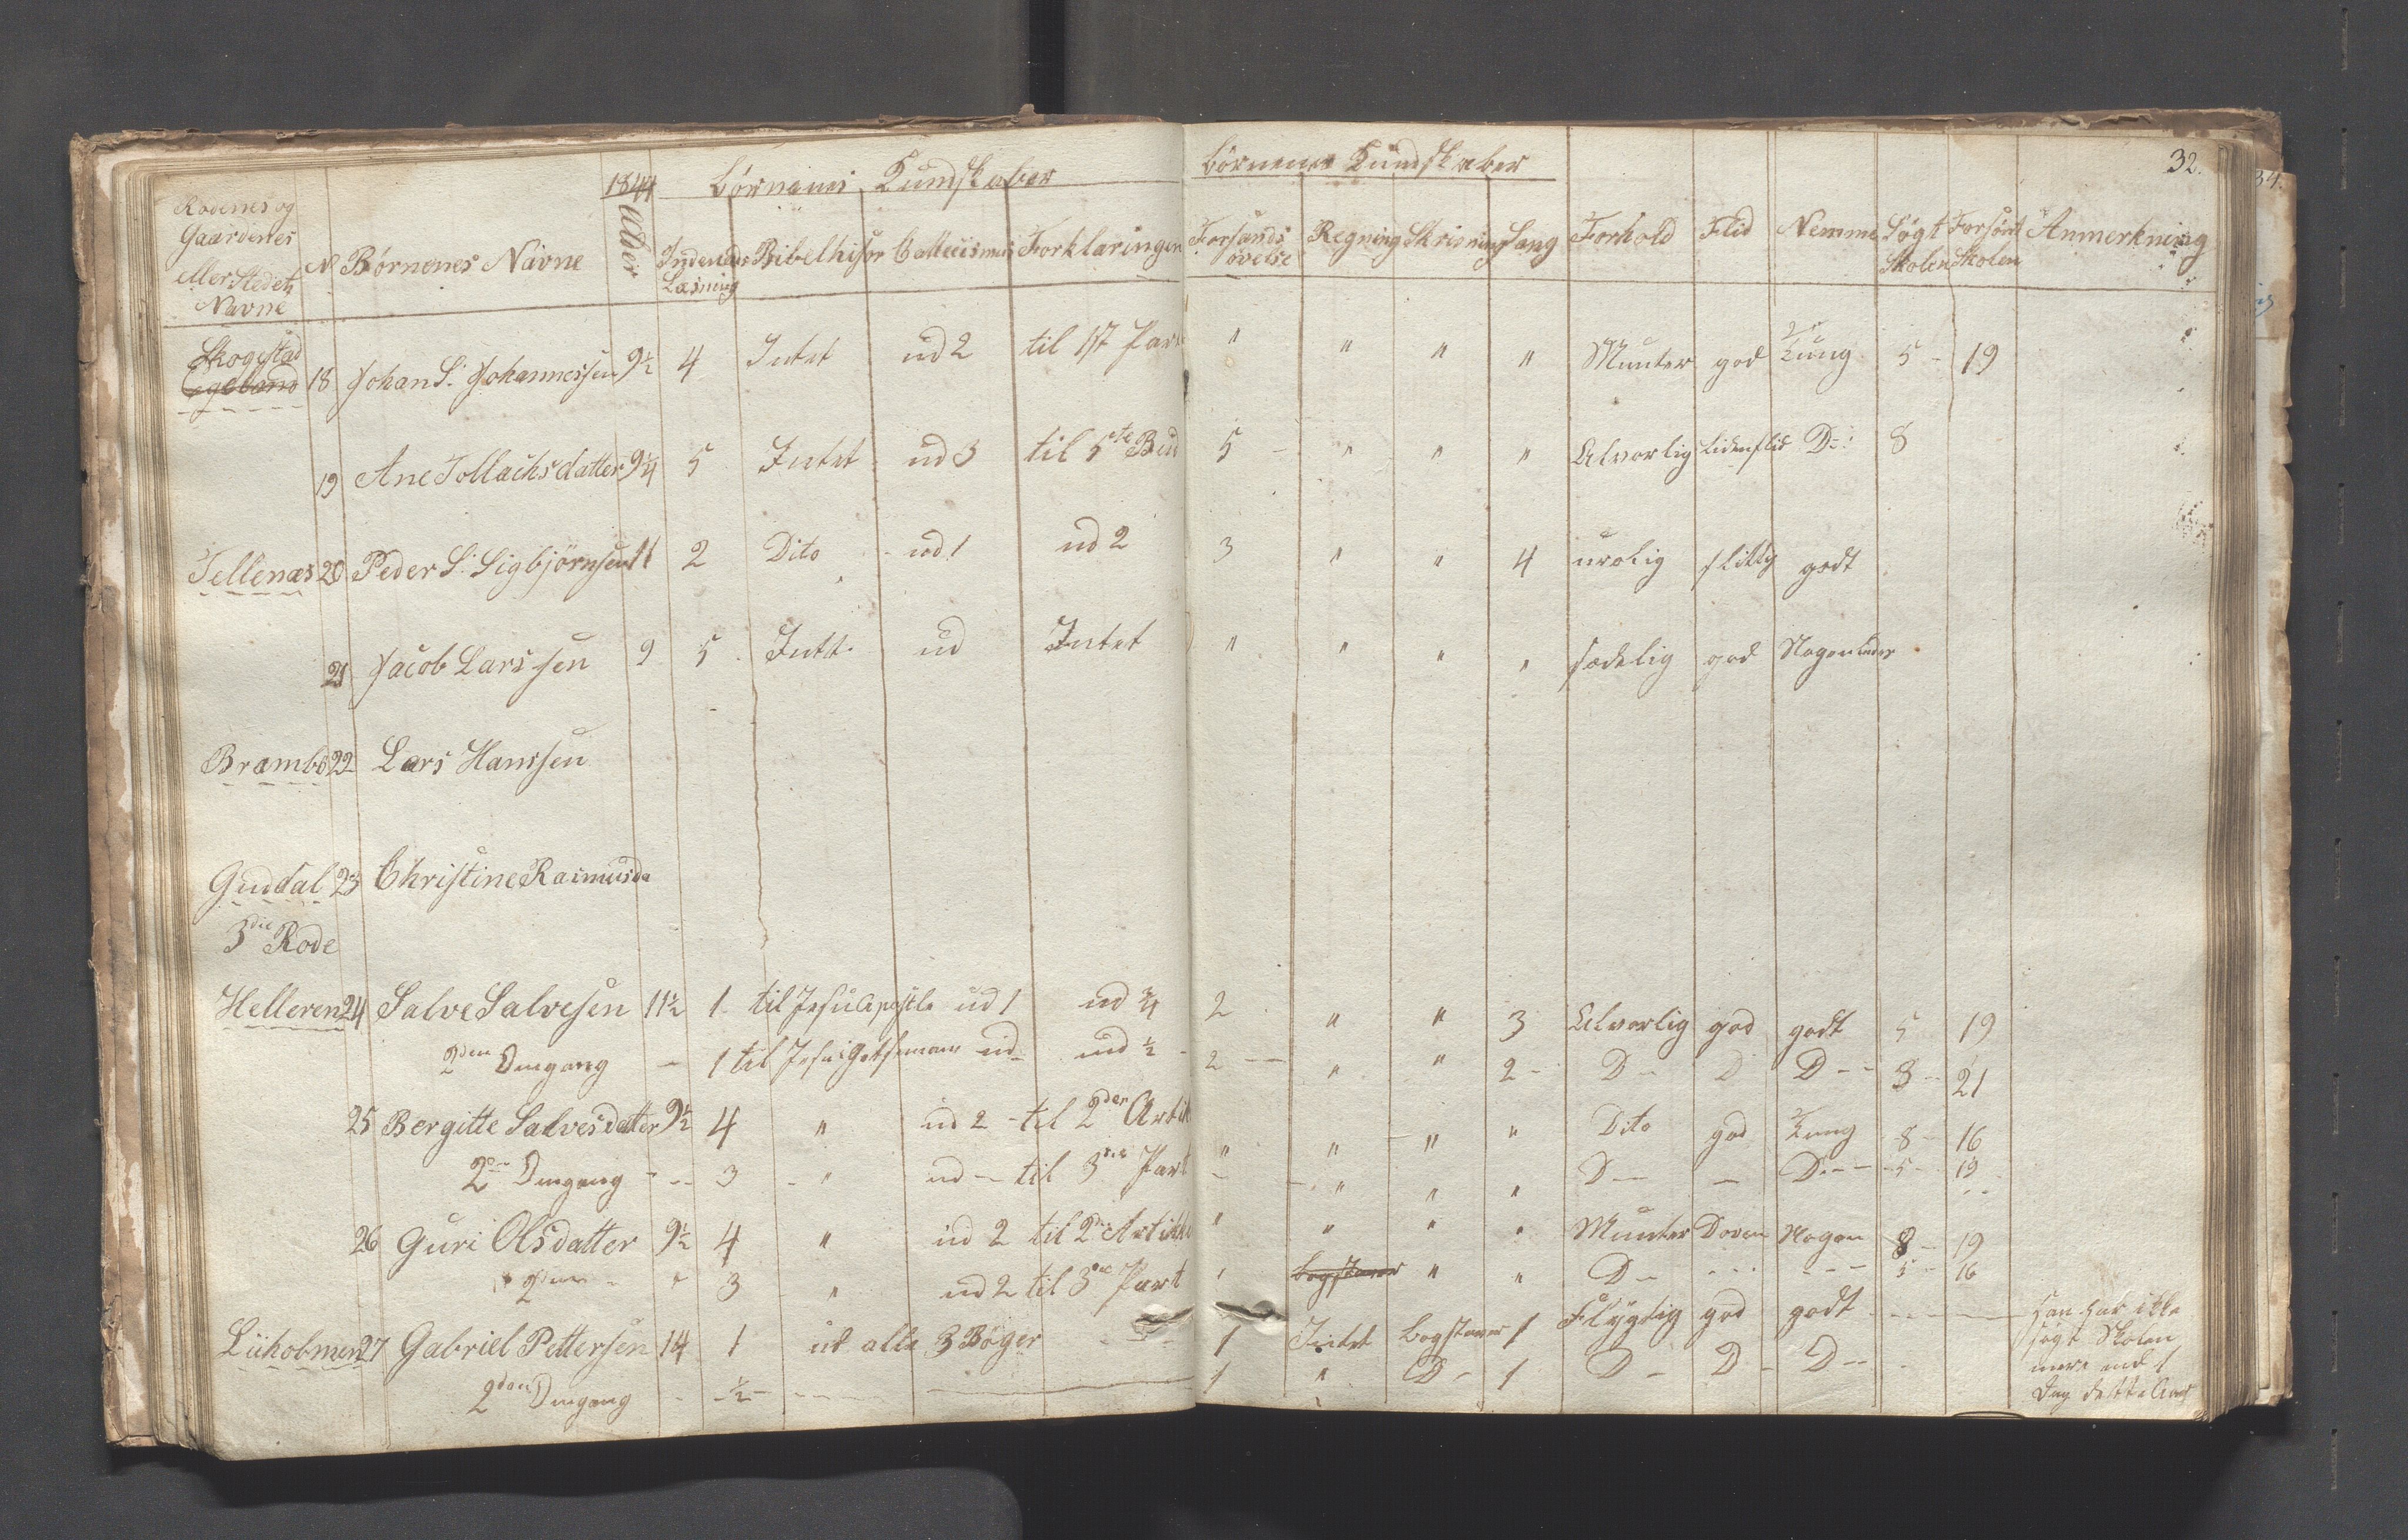 1844 Børnenes Kundskaber Børnenes Kundskaber 32.
Rodenes og
Gaardenes
eller Stedets
Navne
N Børnenes Navne Alder Indenads Læsning Bibelhistor Cathecismus Forklaringen Forstands øvelse Regning Skrivning Sang Forhold Flid Nemme Søgt Skolen Forsømt Skolen Anmerkning
Skogstad
Egeland 18 Johan S. Johannessen 9½ 4 Intet ud 2 til 1st Part " " " " Munter god Tung 5 - 19
19 Ane Tollachsdatter 9¼ 5 Intet ud 3 til 5te Bud 5 - " " " Alvorlig liden flid Do 8
Tellenæs 20 Peder S. Sigbjørnsen 11 2 Dito ud 1 ud 2 3 " " 4 urolig flittig godt
21 Jacob Larssen 9 5 Intet ud Intet " " " " sædelig god Nogenledes
Brambo 22 Lars Hanssen
Guddal 23 Christine Rasmusda
3die Rode
Helleren 24 Salve Salvesen 11½ 1 til Jesu Apostle ud 1 ud ¾ 2 " " 3 Alvorlig god godt 5 19
2den Omgang - 1 til Jesu i Getsemane ud ud ½ 2 - " " 2 - D - D D - - 3 - 21
25 Bergitte Salvesdatter 9½ 4 " ud 2 - til 2den Artik " " " " Dito god Tung 8 - 16
2den Omgang - - 3 - " ud - til 3die Part - " " " D - - D - - 5 - 19
26 Guri Olsdatter 9½ 4 " ud 2 til 2den Artikkel " " " " Munter Doven Nogen 8 - 19
2den - " 3 " ud 2 til 3die Part " Bogstaver " " D - - - - - - - 5 - 16
Liiholmen 27 Gabriel Pettersen 14 1 ud alle 3 Bøger - - - 1 Intet Bogstaver 1 Flygtig god godt - - -
2den Omgang - - ½ - - - - 1 " D - 1 D - D - D - -
Han har ikke
søgt Skolen
mere end 1
Dag dette Aar